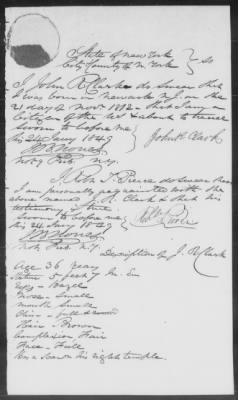 State of New York
City County of N. York } SS
I John R Clark do swear that
I was born in Newark N.J. on the
21 day of Novr 1812 – that I am a
Citizen of the US & about to travel
Sworn to before me
this 24 Jany 1849 } John R. Clark
Noty Pub. N.Y.
I John T Pierce do swear that
I am personally acquainted with the
above named J. R. Clark & that his
testimony is true
Sworn to before me
this 24 Jany 1849
Not Pub N.Y.
Description of J. R Clark
Age 36 years
5 feet 7 in
Eyes – Hazel
Nose – Small
Mouth Small
Chin – full & round
Hair – Brown
Complexion Fair
Face – Full
Has a Scar on his right temple.